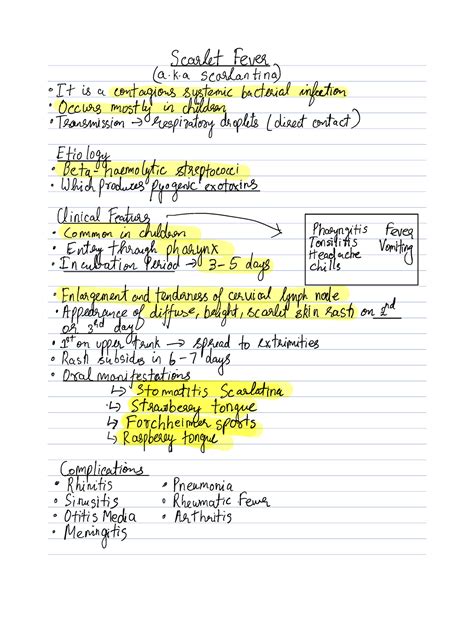 Scarlet Fever
(a.k.a scarlantina)
• It is a contagious systemic bacterial infection
• Occurs mostly in children
• Transmission → respiratory droplets (direct contact)
Etiology
• Beta-haemolytic streptococi
• Which produces pyogenic exotoxins
Clinical Features
• Common in children
• Entry through pharynx
• Incubation Period → 3-5 days
Pharyngitis Fever
Tonsilitis Vomiting
Headache
chills
• Enlargement and tenderness of cervical lymph node
• Appearance of diffuse, bright, scarlet skin rash on 2nd
or 3rd day
• 1st on upper trunk → spread to extrimities
• Rash subsides in 6-7 days
• Oral manifestations
↳ Stomatitis Scarlatina
↳ Strawberry tongue
↳ Forchheimer sports
↳ Raspberry tongue
Complications
• Rhinitis • Pneumonia
• Sinusitis • Rheumatic Fever
• Otitis Media • Arthritis
• Meningitis